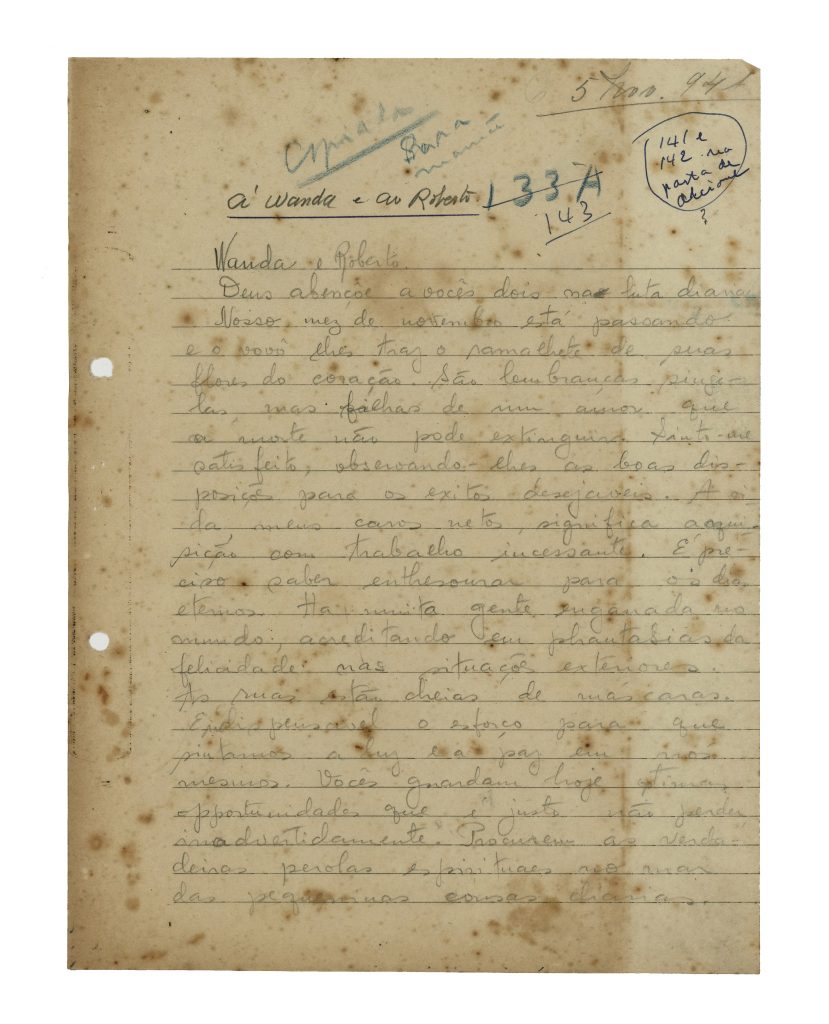 5 Nov. 941
Copiada
Para
mamãe
141 e
142 na
pasta de
?
133 A
143
A' Wanda e ao Roberto
Wanda e Roberto.
Deus abençõe a vocês dois na luta diaria
Nosso mez de novembro está passando
e o vovô lhes traz o ramalhete de suas
flores do coração. São lembranças singe-
las, mas filhas de um amor que
a morte não pode extinguir. Sinto-me
satisfeito, observando-lhes as boas dis-
posições para os exitos desejaveis. A vi-
da, meus caros netos, significa acqui-
sição com trabalho incessante. É pre-
ciso saber enthesourar para os dias
eternos. Ha muita gente enganada no
mundo, acreditando em phantasias da
felicidade nas situações exteriores.
As ruas estão cheias de máscaras.
Indispensavel o esforço para que
sintamos a luz e a paz em nós
mesmos. Vocês guardam hoje otimas
opportunidades que é justo não perder
inadvertidamente. Procurem as verda-
deiras perolas espirituaes no mar
das pequeninas cousas diarias.